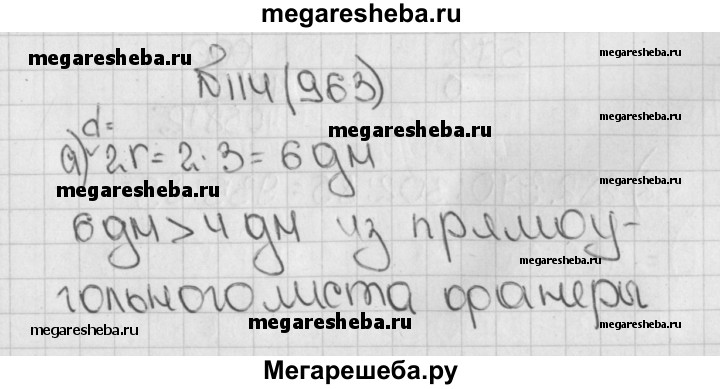 megaresheba.ru
megaresheba.ru megaresheba.ru
№114(963)
megaresheba.ru
megaresheba.ru
d=
а) 2r = 2·3 = 6 дм
megaresheba.ru
6 дм > 4 дм из прямоу-
megaresheba.ru
гольного листа фанеры
megaresheba.ru megaresheba.ru megaresheba.ru
Мегарешеба.ру